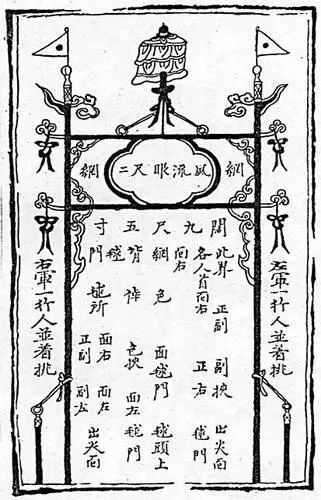 網 風流眼尺二 網
左軍一行人並着挑
闊 此界 正副 副挾 出尖向
各人首向右 正右 毬門
九 向右
尺 網 色 面毬門 毬頭上
五 背 作 色挾 面左毬門
毬 面右 面左
寸門 毬所 正副 副左 出尖向
右軍一行人並着挑